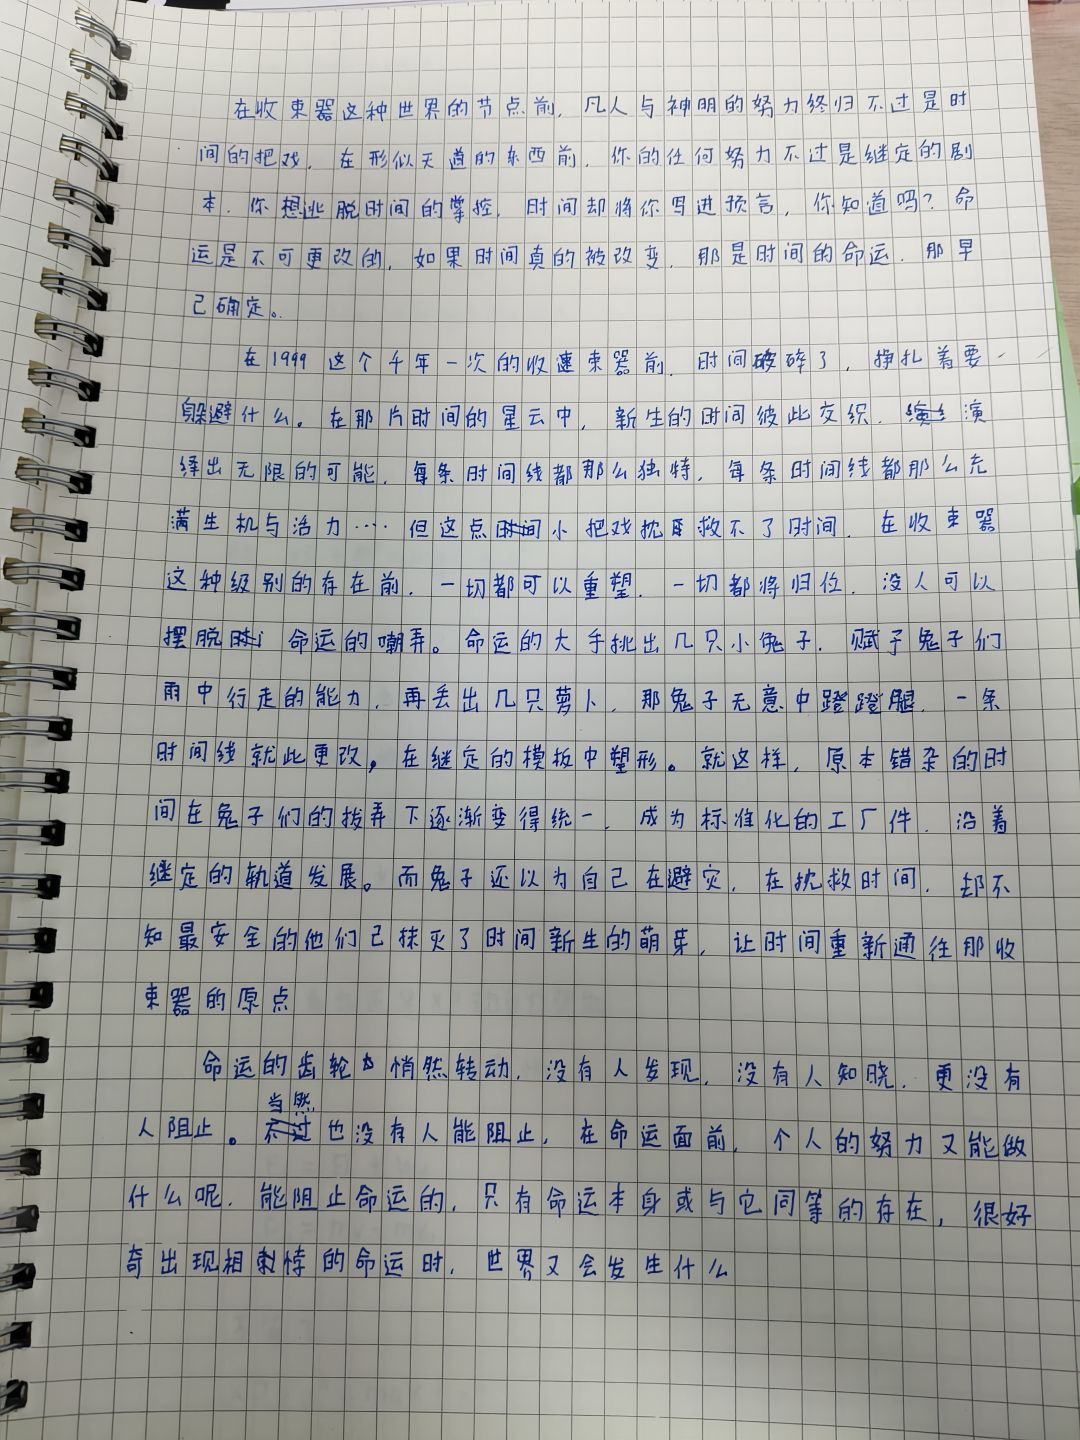 在收束器这种世界的节点前，凡人与神明的努力终归不过是时
间的把戏，在形似天道的东西前，你的任何努力不过是继定的剧
本，你想逃脱时间的掌控，时间却将你写进预言，你知道吗？命
运是不可更改的，如果时间真的被改变，那是时间的命运，那早
已确定。
在1999这个千年一次的收束器前，时间破碎了，挣扎着要
躲避什么。在那片时间的星云中，新生的时间彼此交织，演
绎出无限的可能，每条时间线都那么独特，每条时间线都那么充
满生机与活力……但这点小把戏救不了时间，在收束器
这种级别的存在前，一切都可以重塑，一切都将归位，没人可以
摆脱命运的嘲弄。命运的大手挑出几只小兔子，赋予兔子们
雨中行走的能力，再丢出几只萝卜，那兔子无意中蹬蹬腿，一条
时间线就此更改，在继定的模板中塑形。就这样，原本错杂的时
间在兔子们的拨弄下逐渐变得统一，成为标准化的工厂件，沿着
继定的轨道发展。而兔子还以为自己在避灾，在拯救时间，却不
知最安全的他们已抹灭了时间新生的萌芽，让时间重新通往那收
束器的原点
命运的齿轮悄然转动，没有人发现，没有人知晓，更没有
人阻止。当然也没有人能阻止，在命运面前，个人的努力又能做
什么呢，能阻止命运的，只有命运本身或与它同等的存在，很好
奇出现相悖的命运时，世界又会发生什么